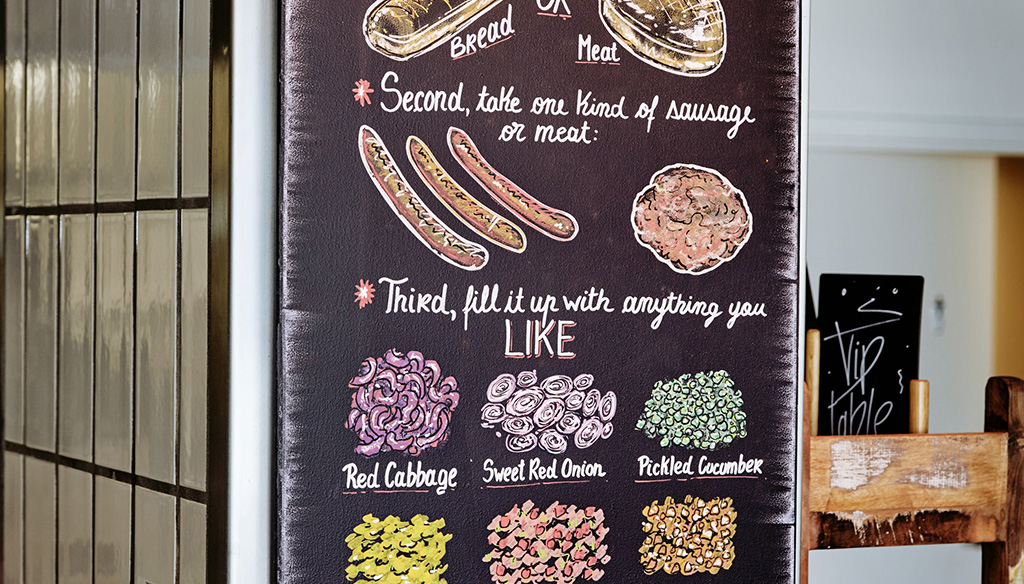 OR
Bread
Meat
Second, take one kind of sausage
or meat:
Third, fill it up with anything you
LIKE
Red Cabbage
Sweet Red Onion
Pickled Cucumber
Vip
table